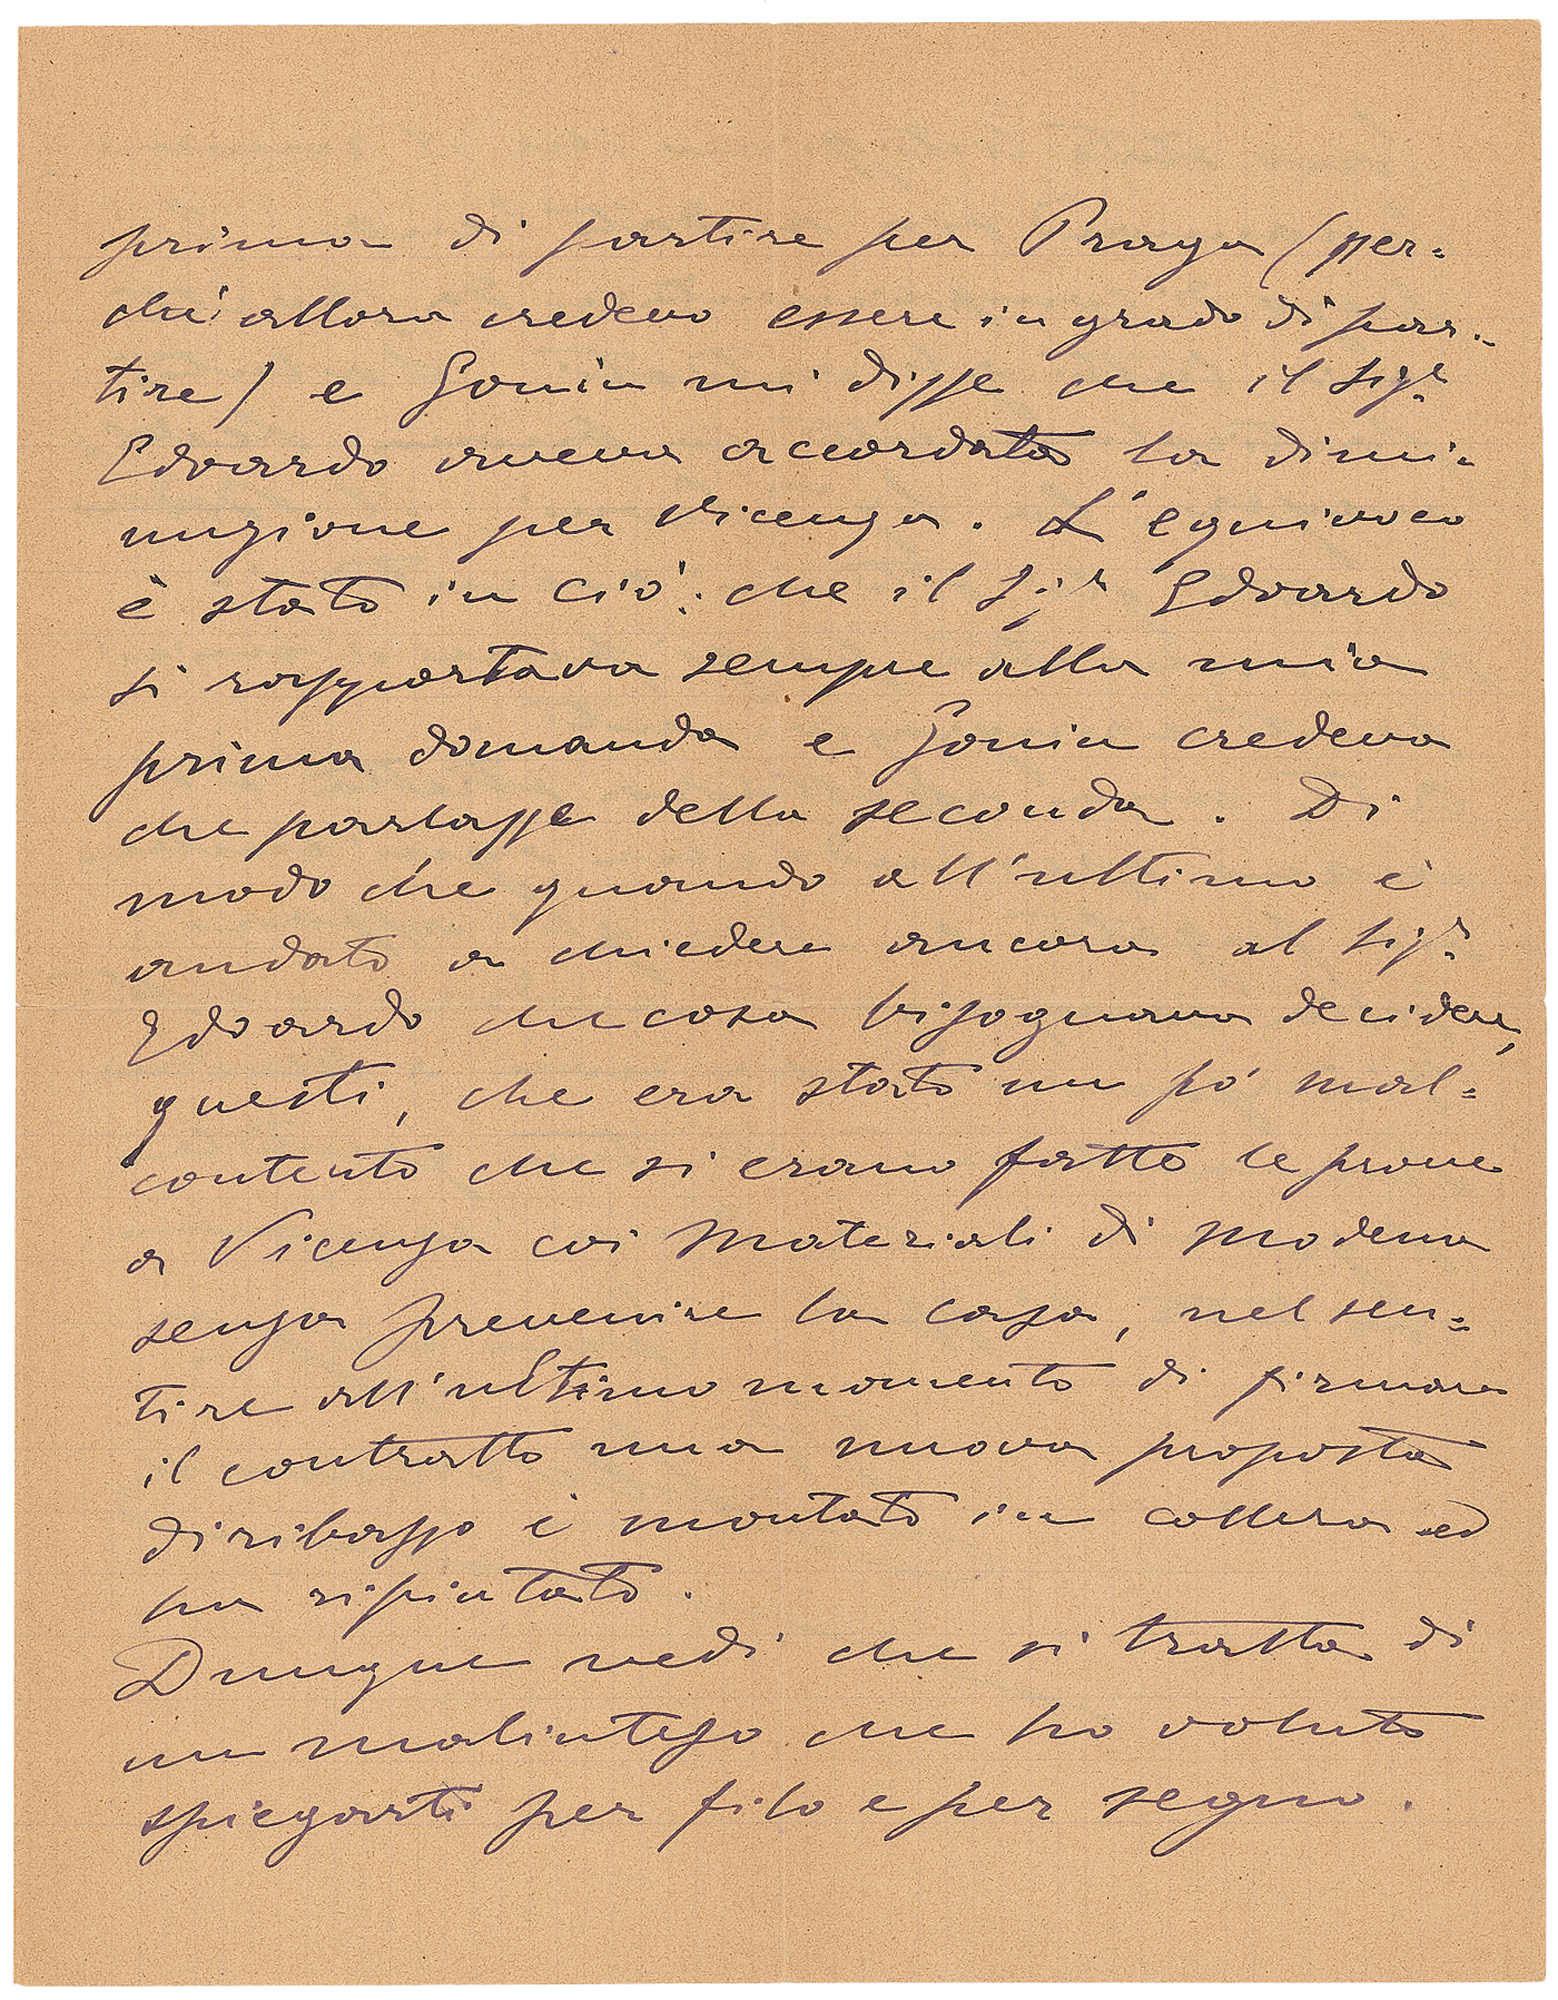 prima di partire per Praga (per-
chè allora credevo essere in grado di par-
tire) e Gonin mi disse che il Sigr
Edoardo aveva accordata la dimi-
nuzione per Vicenza. L'equivoco
è stato in ciò: che il Sigr Edoardo
si rapportava sempre alla mia
prima domanda e Gonin credeva
che parlasse della seconda. Di
modo che quando all'ultimo è
andato a chiedere ancora al Sigr
Edoardo che cosa bisognava decidere,
questi, che era stato un pò mal-
contento che si erano fatte le prove
a Vicenza coi materiali di Modena
senza prevenire la casa, nel sen-
tire all'ultimo momento di firmare
il contratto una nuova proposta
di ribasso è montato in collera ed
ha rifiutato.
Dunque vedi che si tratta di
un malinteso che ho voluto
spiegarti per filo e per segno.